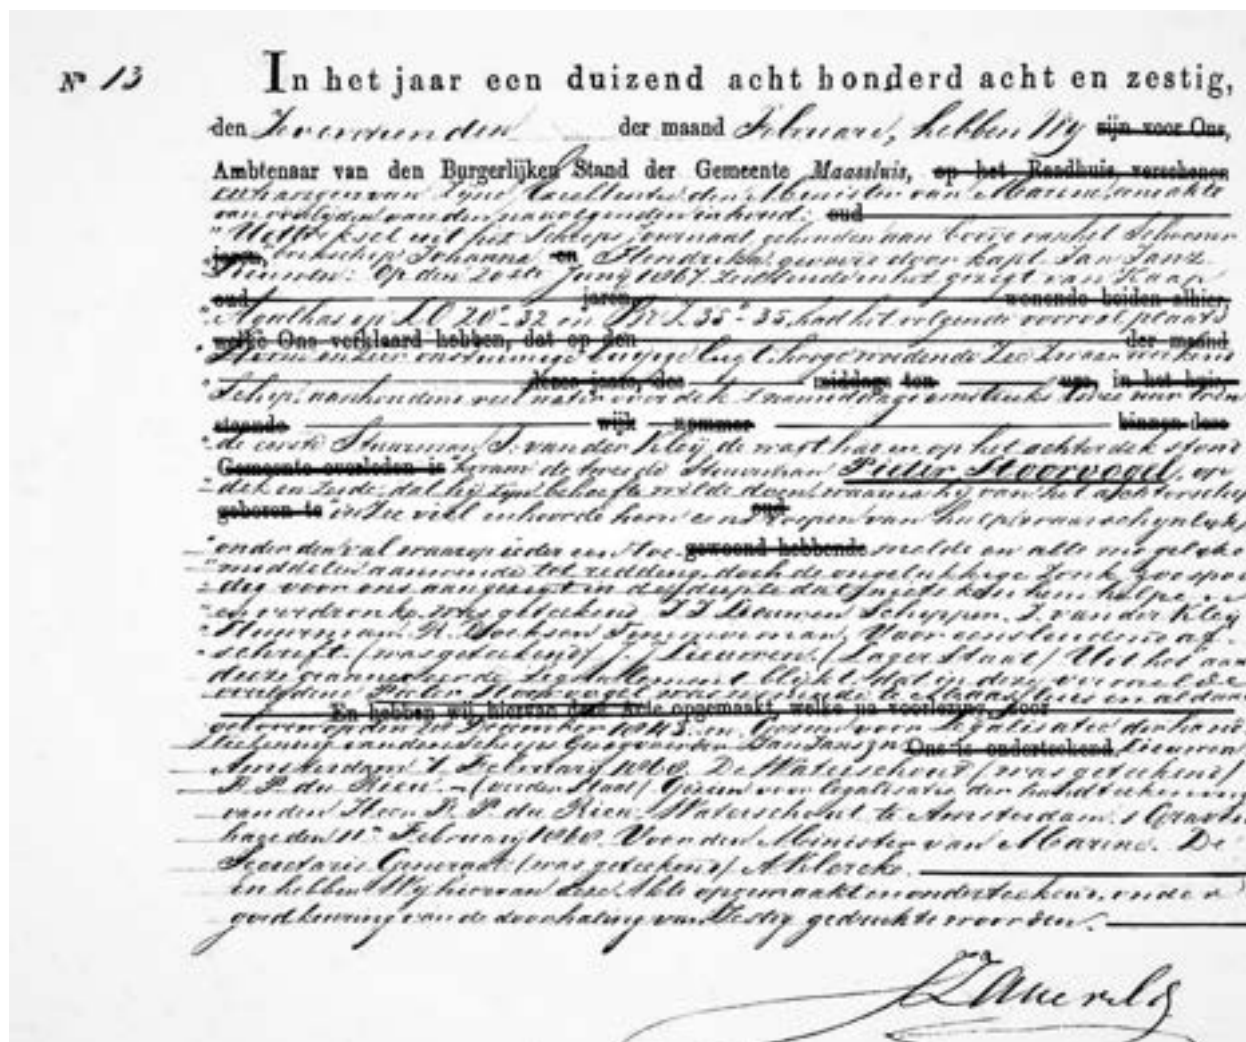 Nº 13
In het jaar een duizend acht honderd acht en zestig,
den Zeventienden der maand Februari, hebben Wy sijn voor Ons,
Ambtenaar van den Burgerlijken Stand der Gemeente Maassluis, op het Raadhuis verschenen
ontvangen van Zyne Excellentie den Minister van Marine, eene akte
van overlyden van den navolgenden inhoud: oud
"Uittreksel uit het Scheeps Journaal, gehouden aan boord van het Schoener
jaren, brikschip Johanna en Hendrika gevoerd door kapt. Jan Janz.
Leeuwen: Op den 20ste Juny 1867 zeilende in het gezigt van Kaap
oud jaren, wonende beiden alhier,
Agulhas op L.O. 20°-32 en Br Z. 35°-35, had het volgende voorval plaats
welke Ons verklaard hebben, dat op den der maand
Storm en zeer onstuimige buiige lugt, hooge Zee Zwaar werkend
dezes jaars, des middags ten ure, in het huis,
Schip, aanhoudend veel water over dek, 's namiddags omstreeks uur toen
staande wijk nommer binnen deze
de eerste Stuurman J. van der Kleÿ de wacht had en op het achterdek stond
Gemeente overleden is kwam de tweede Stuurman Pieter Stoorvogel, op
dek en zeide, dat hij zijn behoefte wilde doen, waarna hij van het achterschip
geboren te in Zee viel en hoorde hem eens roepen van hulp, waarschynlyk oud
onder den val waarop ieder gewoond hebbende snelde en alle mogelyke
middelen aanwende tot redding, doch de ongelukkige zonk zoo spoe
dig voor ons aangezigt in de diepte dat niets kon hem helpen
en verdronk, was geteekend J J Leeuwen Schipper. J. van der Kley
Stuurman. R. Timmerman, Voor eensluidend af-
schrift. (was geteekend) J. J. Leeuwen. (Lager Staat) Uit het aan
deze geannexeerde blijkt, dat in deze vermelde
overledene Pieter Stoorvogel was te Maassluis en aldaar
En hebben wij hiervan deze Acte opgemaakt, welke na voorlezing, door
geboren op den December 1843. en Gezien voor Legalisatie der hand
teekening van den Scheeps Gezagvoerder Jan Jansz Ons is onderteekend. Leeuwen.
Amsterdam 7 Februarij 1868. De Waterschout (was geteekend)
R. P. du Rieu. (verder Staat) Gezien voor legalisatie der handteekening
van den Heer R. P. du Rieu, Waterschout te Amsterdam. 's Graven
hage den 11n Februarij 1868. Voor den Minister van Marine. De
Secretaris Generaal (was geteekend) A. Klercke.
en hebben Wy hiervan deze Akte opgemaakt en onderteekend, onder
goedkeuring van de doorhaling van Zestig gedrukte woorden.